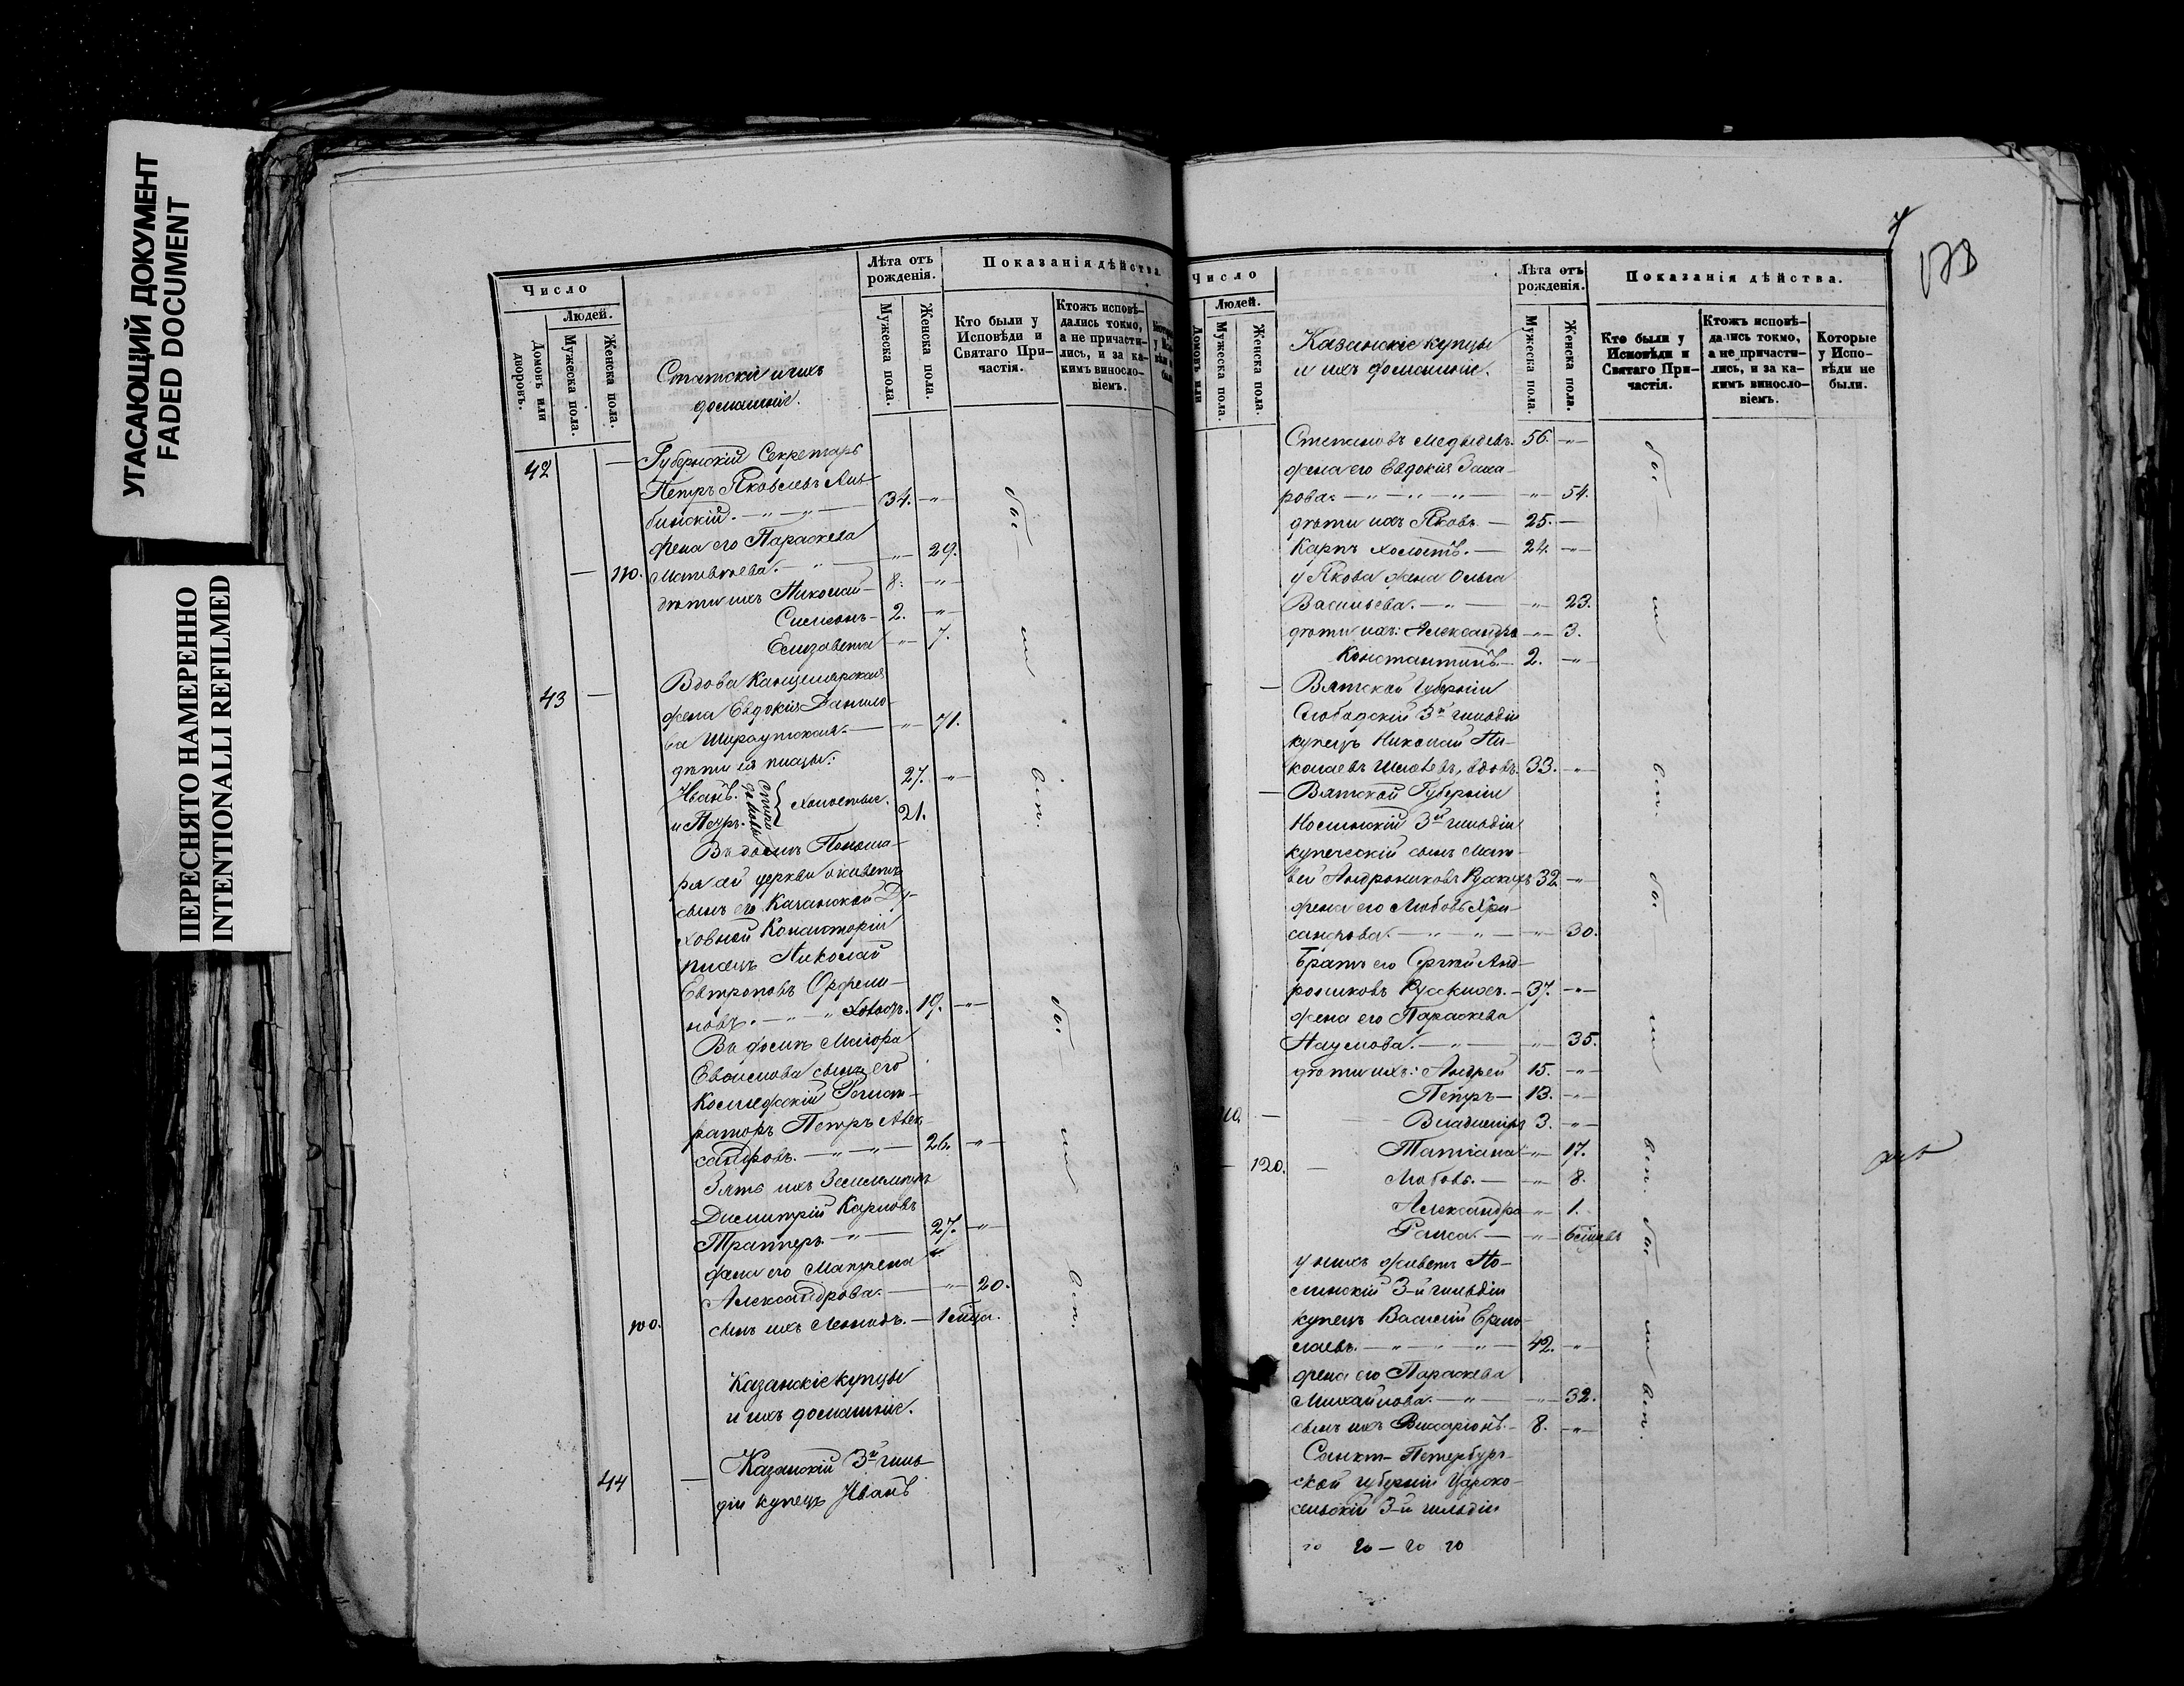 УГАСАЮЩИЙ ДОКУМЕНТ
FADED DOCUMENT
ПЕРЕСНЯТО НАМЕРЕННО
INTENTIONALLI REFILMED
Число
Людей.
Домовъ или дворовъ.
Мужеска пола.
Женска пола.
Статскіе и ихъ
домашніе.
Лѣта отъ
рожденія.
Мужеска пола.
Женска пола.
Показанія дѣйства.
Кто были у
Исповѣди и
Святаго При-
частія.
Ктожъ исповѣ-
дались токмо,
а не причасти-
лись, и за ка-
кимъ винословіемъ.
42 — Губернскій Секретарь
Петръ Яковлевъ
бинскій. — 34. —
жена его Параскева
— 110. Матвѣева. — 29.
дѣти ихъ Николай — 8. —
Симеонъ — 2. —
Елизавета — 7.
43 — Вдова Канцелярская
жена Евдокія Данило-
ва — 71.
дѣти ея писцы:
Иванъ. холостые. 27. —
и Петръ. 21.
Въ домѣ Понома-
ря сей церкви живетъ
сынъ его Казанской Ду-
ховной Консисторіи
писецъ Николай
Евтроповъ
новъ. — Холост. 19. —
Въ домѣ Маіора
сынъ его
Коллежскій Регист-
раторъ Петръ Алек-
сандровъ. — 26. —
Зять ихъ Землемѣръ
Димитрій Карловъ
27. —
жена его
Александрова. — 20.
100. сынъ ихъ Леонидъ. — 1 мѣсца.
Казанскіе купцы
и ихъ домашніе.
44 — Казанскій 3й гиль-
діи купецъ Иванъ
7
178
Число
Людей.
Домовъ или
Мужеска пола.
Женска пола.
Казанскіе купцы
и ихъ домашніе.
Лѣта отъ
рожденія.
Мужеска пола.
Женска пола.
Показанія дѣйства.
Кто были у
Исповѣди и
Святаго При-
частія.
Ктожъ исповѣ-
дались токмо,
а не причасти-
лись, и за ка-
кимъ винословіемъ.
Которые
у Испо-
вѣди не
были.
Степановъ Медвѣдевъ. 56. —
жена его Евдокія Заха-
рова. — 54.
дѣти ихъ Яковъ. — 25. —
Карпъ холостъ. — 24. —
у Якова жена Ольга
Васильева. — 23.
дѣти ихъ: Александра — 3.
Константинъ — 2. —
— Вятской Губерніи
Слободскій 3й гильдіи
купецъ Николай Ни-
колаевъ вдовъ. 33. —
— Вятской Губерніи
Нолинскій 3й гильдіи
купеческій сынъ Мат-
вей Андрониковъ Русскихъ 32. —
жена его Любовь Хри-
санфова. — 30.
Братъ его Сергѣй Анд-
рониковъ Русскихъ. — 37. —
жена его Параскева
Наумова. — 35.
дѣти ихъ: Андрей 15. —
Петръ — 13. —
Владиміръ 3. —
120. — Татіана — 17.
Любовь. — 8.
Александра — 1.
Раиса. — 6 мѣсяцевъ
у нихъ живетъ Но-
линскій 3-й гильдіи
купецъ Василій Ермо-
лаевъ. — 42. —
жена его Параскева
Михайлова. — 32.
сынъ ихъ Виссаріонъ. — 8. —
Санкт-Петербург-
ской губерніи Царско-
сельскій 3-й гильдіи